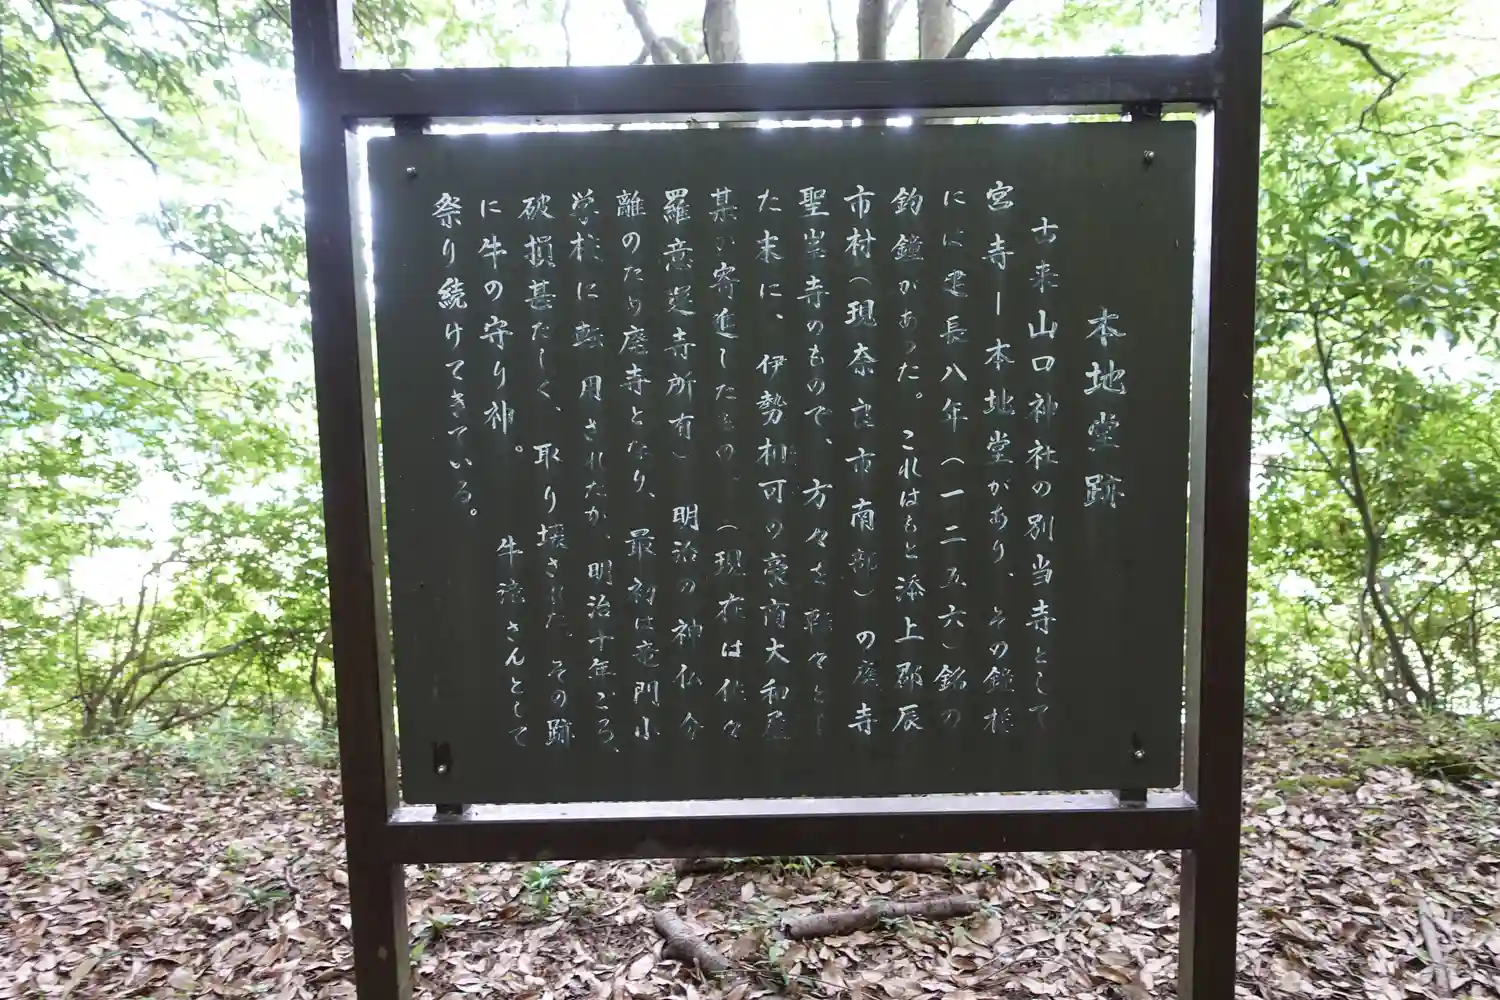 本地堂跡
古来山口神社の別当寺として
宮寺ー本地堂があり、その鐘楼
には建長八年(一二五六)銘の
釣鐘があった。これはもと添上郡辰
市村(現奈良市南部)の廃寺
聖崇寺のもので、方々を転々とし
た末に、伊勢相可の豪商大和屋
某が寄進したもの。(現在は佐々
羅意運寺所有)明治の神仏分
離のため廃寺となり、最初は竜門小
学校に転用されたが、明治十年ごろ、
破損甚だしく、取り壊された。その跡
に牛の守り神。牛滝さんとして
祭り続けてきている。